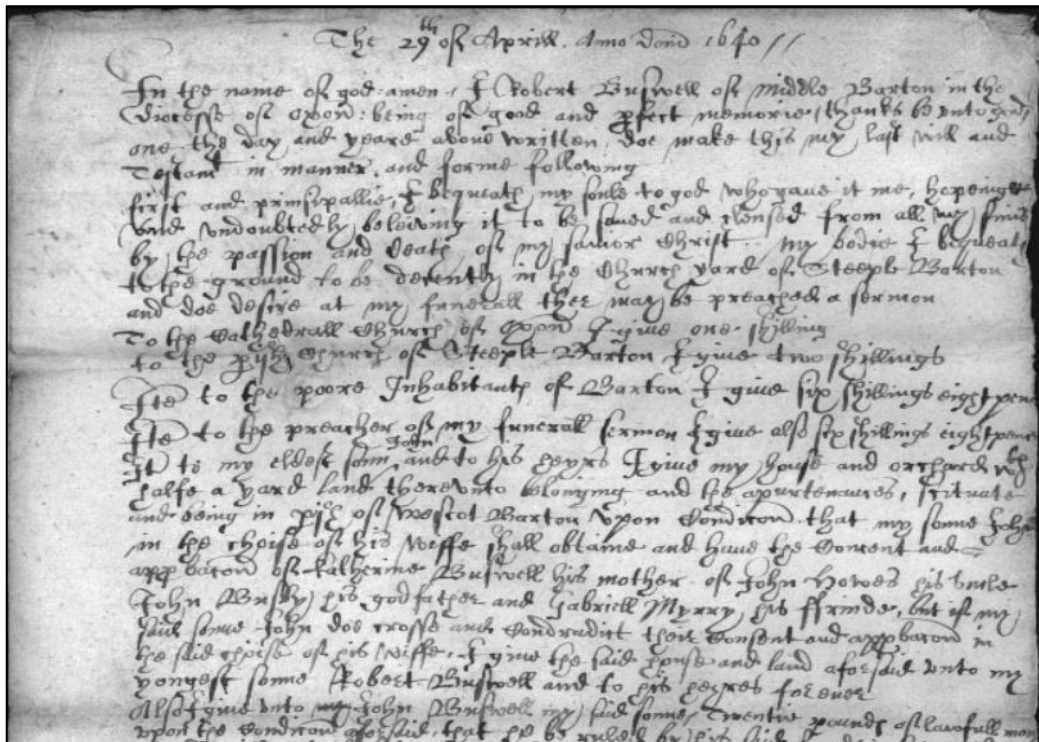 The 29th of Aprill. Anno dom 1640 //
In the name of god amen, I Robert Buswell of Middle Barton in the
Diocesse of Oxon: being of good and pfect memorie, thanks be unto god,
one the day and yeare above written, doe make this my last will and
Testamt in manner, and forme following
first and prinsepallie, I bequeath my soule to god who gave it me, hopeinge
and undoubtedly beleiving it to be saved and clensed from all my sinns
by the passion and death of my savior Christ. my bodie I bequeath
to the ground to be decently in the Church yard of Steeple Barton
and doe desire at my funerall ther may be preached a sermon
To the Cathedrall Church of Oxon I give one shilling
to the pish Church of Steeple Barton I give two shillings
Ite to the poore Inhabitants of Barton I give six shillings eight pence
Ite to the preacher of my funerall sermon I give also six shillings eightpence
It to my eldest sonn John and to his heyrs I give my house and orchard wth
halfe a yard land therevnto blonging and the apurtenances, scituate
and being in pish of Wescot Barton vpon Condicon that my sonne John
in the choise of his wiffe shall obtaine and have the Concent and
appbacon of Katherine Buswell his mother of John Howes his vncle
John Busby his godfather and Gabriell Myrry his ffrinde, but if my
said sonne John doe crosse and Condradict their Consent and appbacon in
the said choise of his wiffe, I give the said house and land aforsaid vnto my
yongest sonne Robert Buswell and to his heyres for ever
Also I give vnto my John Buswell my said sonne, Twentie pounds of lawfull mon
vpon the Condicon aforsaid, that he be ruled by his said